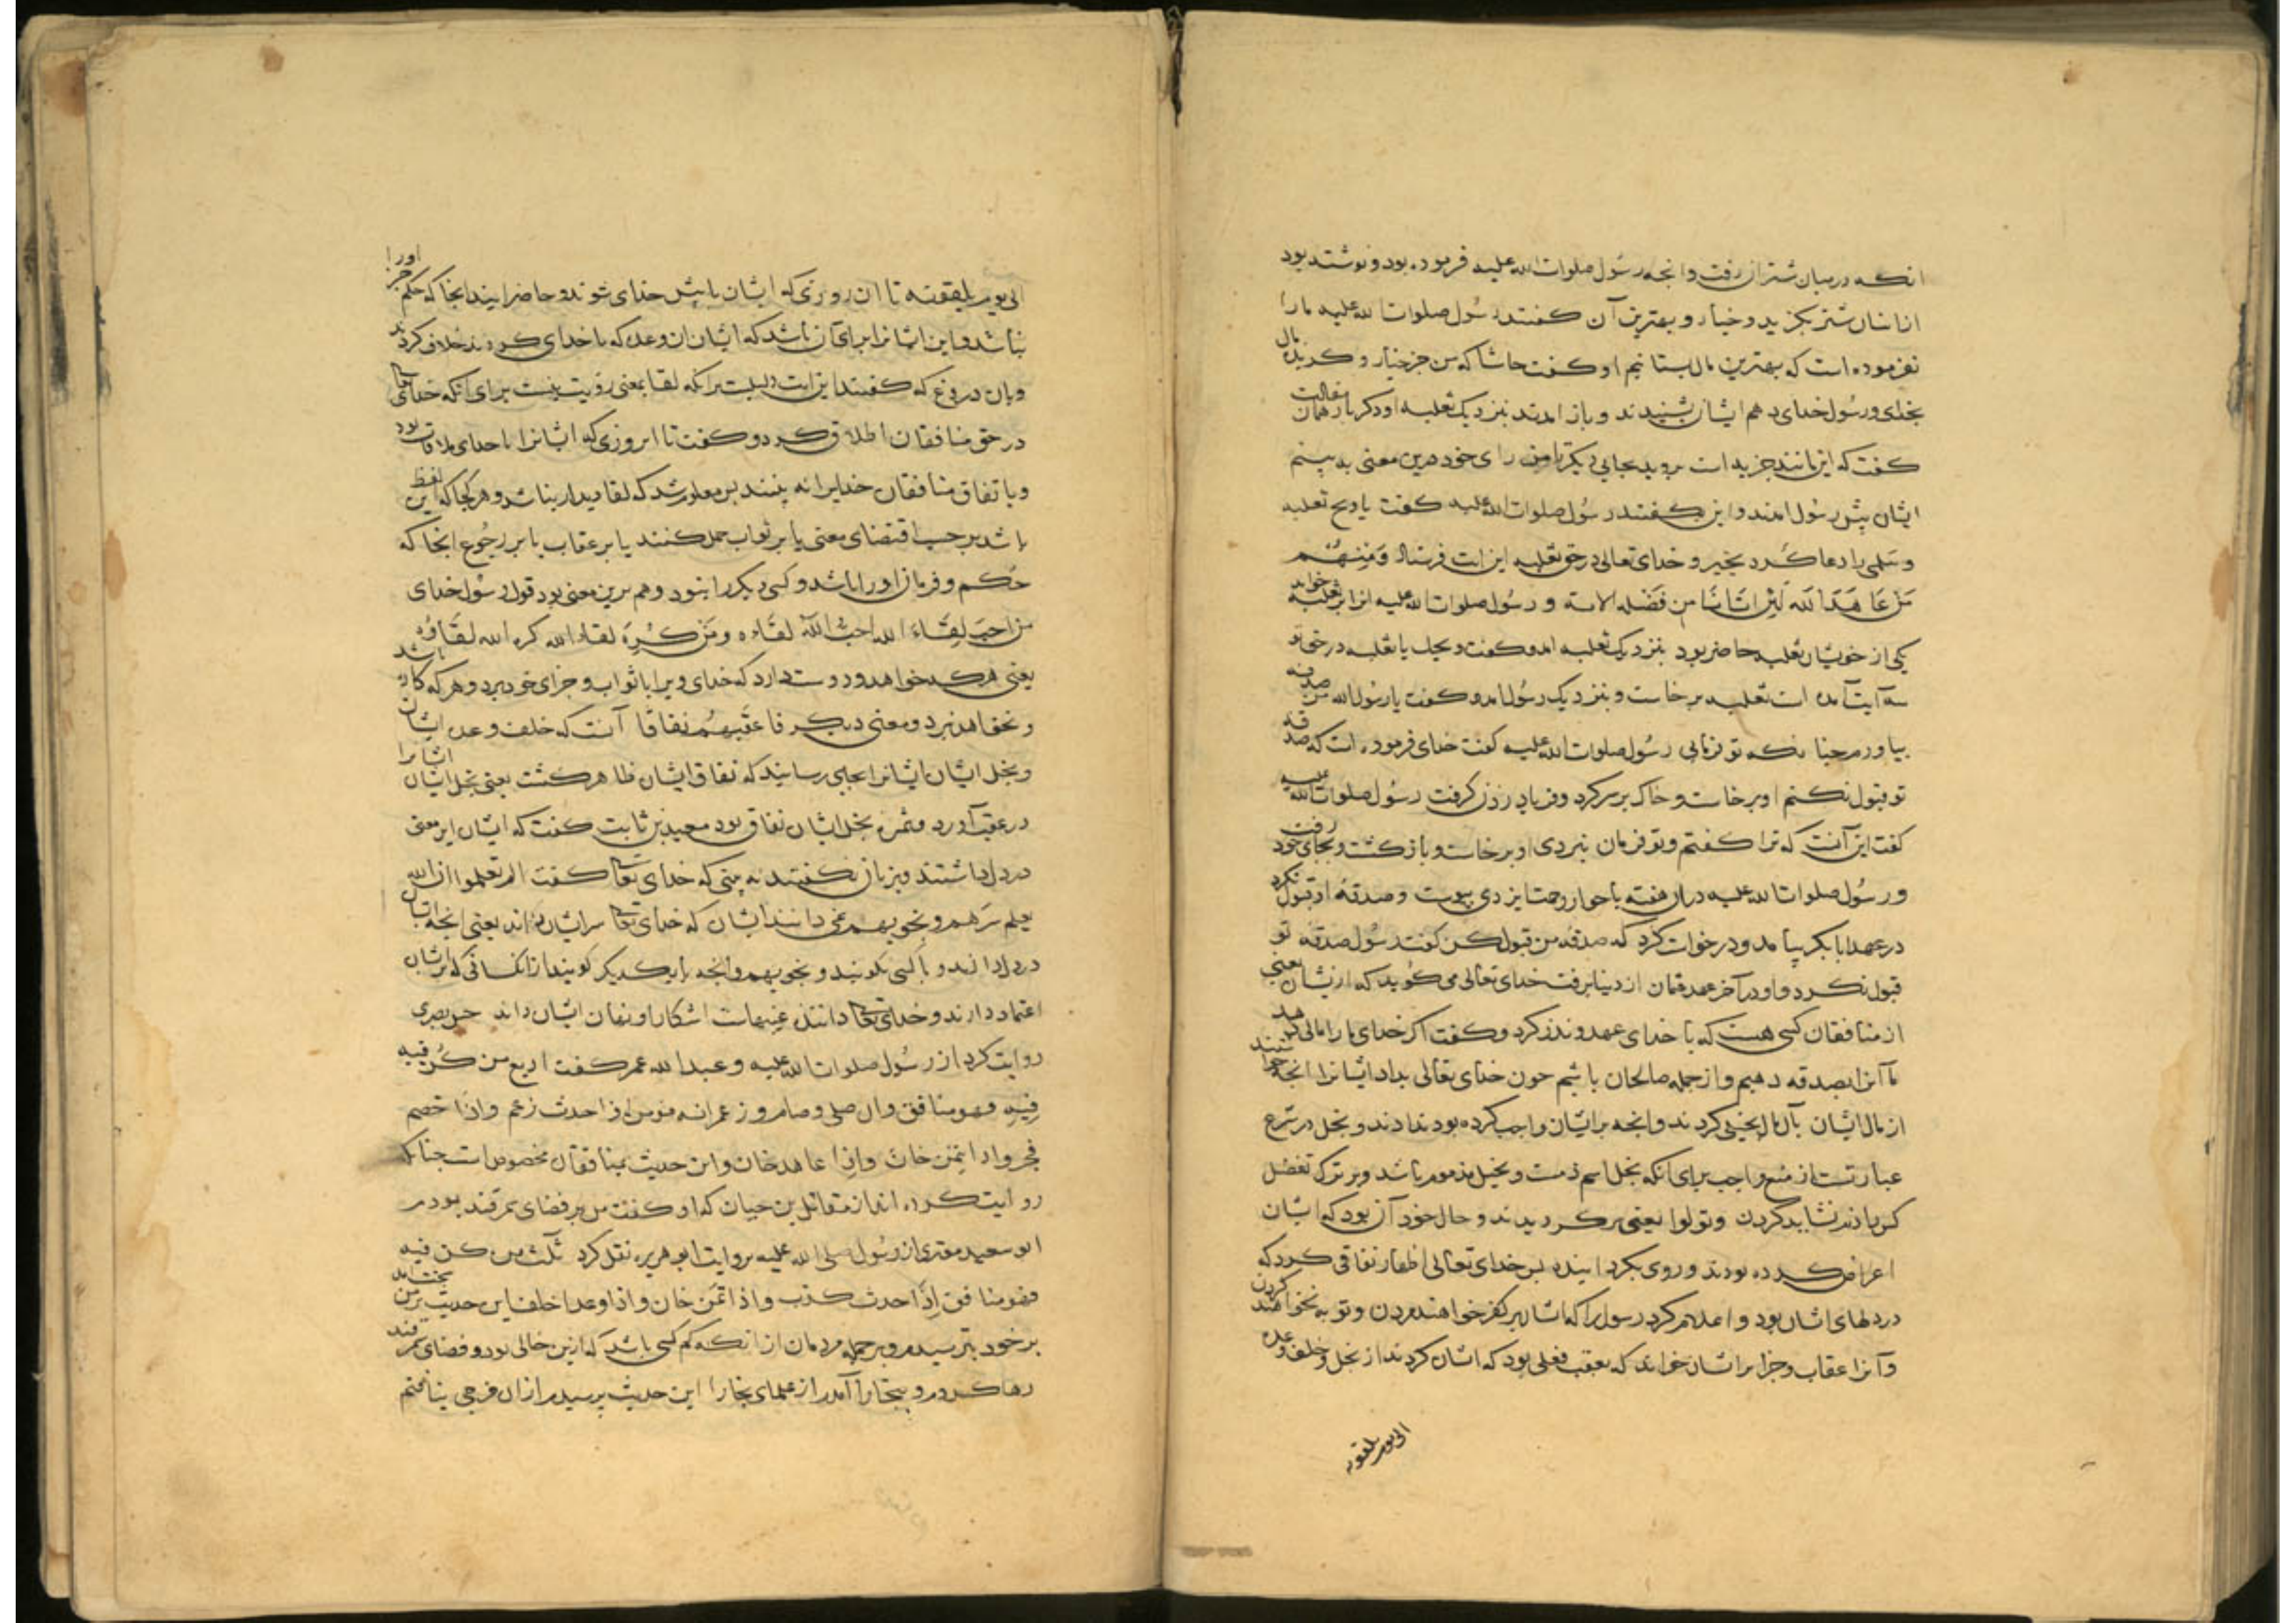 انکه درمیان شتران رفت وانجه رسول صلوات الله علیه فرموده بود ونوشته بود
ازانشان شتر بکزید وخیار و بهترین آن کفتند رسول صلوات الله علیه مارا
نفرموده است که بهترین مال بستانیم او کفت حاشا که من جز خیار مال
بخدای ورسول خدای دهم ایشان بشنیدند وباز امدند بنزدیک ثعلبه او دکر بار همان مقالت
کفت که این مانند جزیه است بروید بجایی دیکر تا من رای خود درین معنی به بینم
ایشان پیش رسول امدند واین بکفتند رسول صلوات الله علیه کفت یا ویح ثعلبه
وسلمی را دعا کرد بخیر و خدای تعالی درحق ثعلبه این ایت فرستاد وَمِنهُم
مَن عَاهَدَ الله لَئِن اتَانَا من فَضله الایه و رسول صلوات الله علیه انرا بر ثعلبه خواند
یکی از خویشان ثعلبه حاضر بود بنزدیک ثعلبه امد وکفت ویحک یا ثعلبه درحق تو
سه آیت آمده است ثعلبه برخاست وبنزدیک رسول امد و کفت یارسول الله من صدقه
بیاوردم چنانکه تو فرمایی رسول صلوات الله علیه کفت خدای فرموده است که صدقه
تو قبول نکنم او برخاست و خاک بر سر کرد وفریاد زدن کرفت رسول صلوات الله علیه
کفت این آنست که ترا کفتم وتو فرمان نبردی او برخاست وباز کشت وبجای خود رفت
ورسول صلوات الله علیه دران هفته باجوار رحمت ایزدی پیوست وصدقه او قبول نکرد
درعهد ابابکر بیامد ودرخواست کرد که صدقه من قبول کن کفت رسول صدقه تو
قبول نکرد واو در آخر عهد عثمان از دنیا برفت خدای تعالی می کوید که ازیشان یعنی
از منافقان کسی هست که با خدای عهد ونذر کرد وکفت اکر خدای مارا مالی دهد
ما آنرا بصدقه دهیم واز جمله صالحان باشیم چون خدای تعالی بداد ایشانرا انجه خواستند
از مال ایشان بآن مال بخیلی کردند وانجه بر ایشان واجب کرده بود ندادند وبخل در شرع
عبارتست از منع واجب برای انکه بخل اسم ذمست وبخیل مذموم باشد وبر ترک تفضل
کس را ذم نشاید کردن وتولوا یعنی برکردیدند و حال خود آن بود که ایشان
اعراض کرده بودند وروی بکردانیده پس خدای تعالی اظهار نفاقی کرد که
دردلهای ایشان بود واعلام کرد رسول را که ایشان بر کفر خواهند مردن وتوبه نخواهند کردن
وآنرا عقاب وجزا بر ایشان خواند که بعقب فعلی بود که ایشان کردند از بخل وخلف وعده
الی یوم یلقونه
الی یوم یلقونه تا ان روزی که ایشان با پیش خدای شوند وحاضر ایند انجا که حکم جز اورا
نباشد واین ایشانرا برای آن باشد که ایشان ان وعده که با خدای کردند خلاف کردند
وبان دروغ که کفتند این ایت دلیلست برانکه لقا بمعنی رؤیت نیست برای انکه خدای تعالی
درحق منافقان اطلاق کرد وکفت تا ان روزی که ایشانرا با خدای ملاقات بود
وباتفاق منافقان خدایرا نه بینند پس معلوم شد که لقا دیدار نباشد وهرکجا که این لفظ
باشد برحسب اقتضای معنی یا بر ثواب حمل کنند یا بر عقاب یا بر رجوع انجا که
حکم وفرمان اورا باشد وکسی دیکر را نبود وهم برین معنی بود قول رسول خدای
من احب لِقَاءَ الله احب الله لقاءه ومَن کَرِهَ لقاء الله کره الله لقاؤه
یعنی هرکه خواهد ودوست دارد که خدای ویرا با ثواب وجزای خود برد وهرکه کاره باشد
ونخواهد نبرد ومعنی دیکر فاعقبهم نفاقا آنست که خلف وعده ایشان
وبخل ایشان ایشانرا بجایی رسانید که نفاق ایشان ظاهر کشت یعنی بخل ایشان ایشانرا
درعقب آورد وثمره بخل ایشان نفاق بود معبد بن ثابت کفت که ایشان این معنی
دردل داشتند وبزبان نکفتند نه بینی که خدای تعالی کفت الم تعلموا ان الله
یعلم سرهم ونجویهم نمی دانند ایشان که خدای تعالی سر ایشان داند یعنی انجه ایشان
دردل دارند وبا کسی نکویند ونجویهم وانجه با یکدیکر کویند از کسانی که بر ایشان
اعتماد دارند وخدای تعالی داننده غیبهاست اشکارا ونهان ایشان داند حسن بصری
روایت کرد از رسول صلوات الله علیه وعبدالله عمر کفت اربع من کن فیه
فیه فهو منافق وان صلی وصام وزعم انه مومن اذا حدث زعم واذا خصم
فجر واذا اتمن خان واذا عاهد خان واین حدیث بمنافقان مخصوص است چنانکه
روایت کرده اند از مقاتل بن حیان که او کفت من بر قضای سمرقند بودم
ابو سعید مقبری از رسول صلی الله علیه بروایت ابو هریره نقل کرد ثلث من کن فیه
فهو منافق اِذَا حدث کذب واذا اتمن خان واذا وعد اخلف این حدیث بر من سخت امد
بر خود بترسیدم وبر جمله مردمان از انکه کم کسی باشد که ازین خالی بود وقضای سمرقند
رها کردم و ببخارا آمدم از علمای بخارا این حدیث پرسیدم ازان فرجی نیافتم